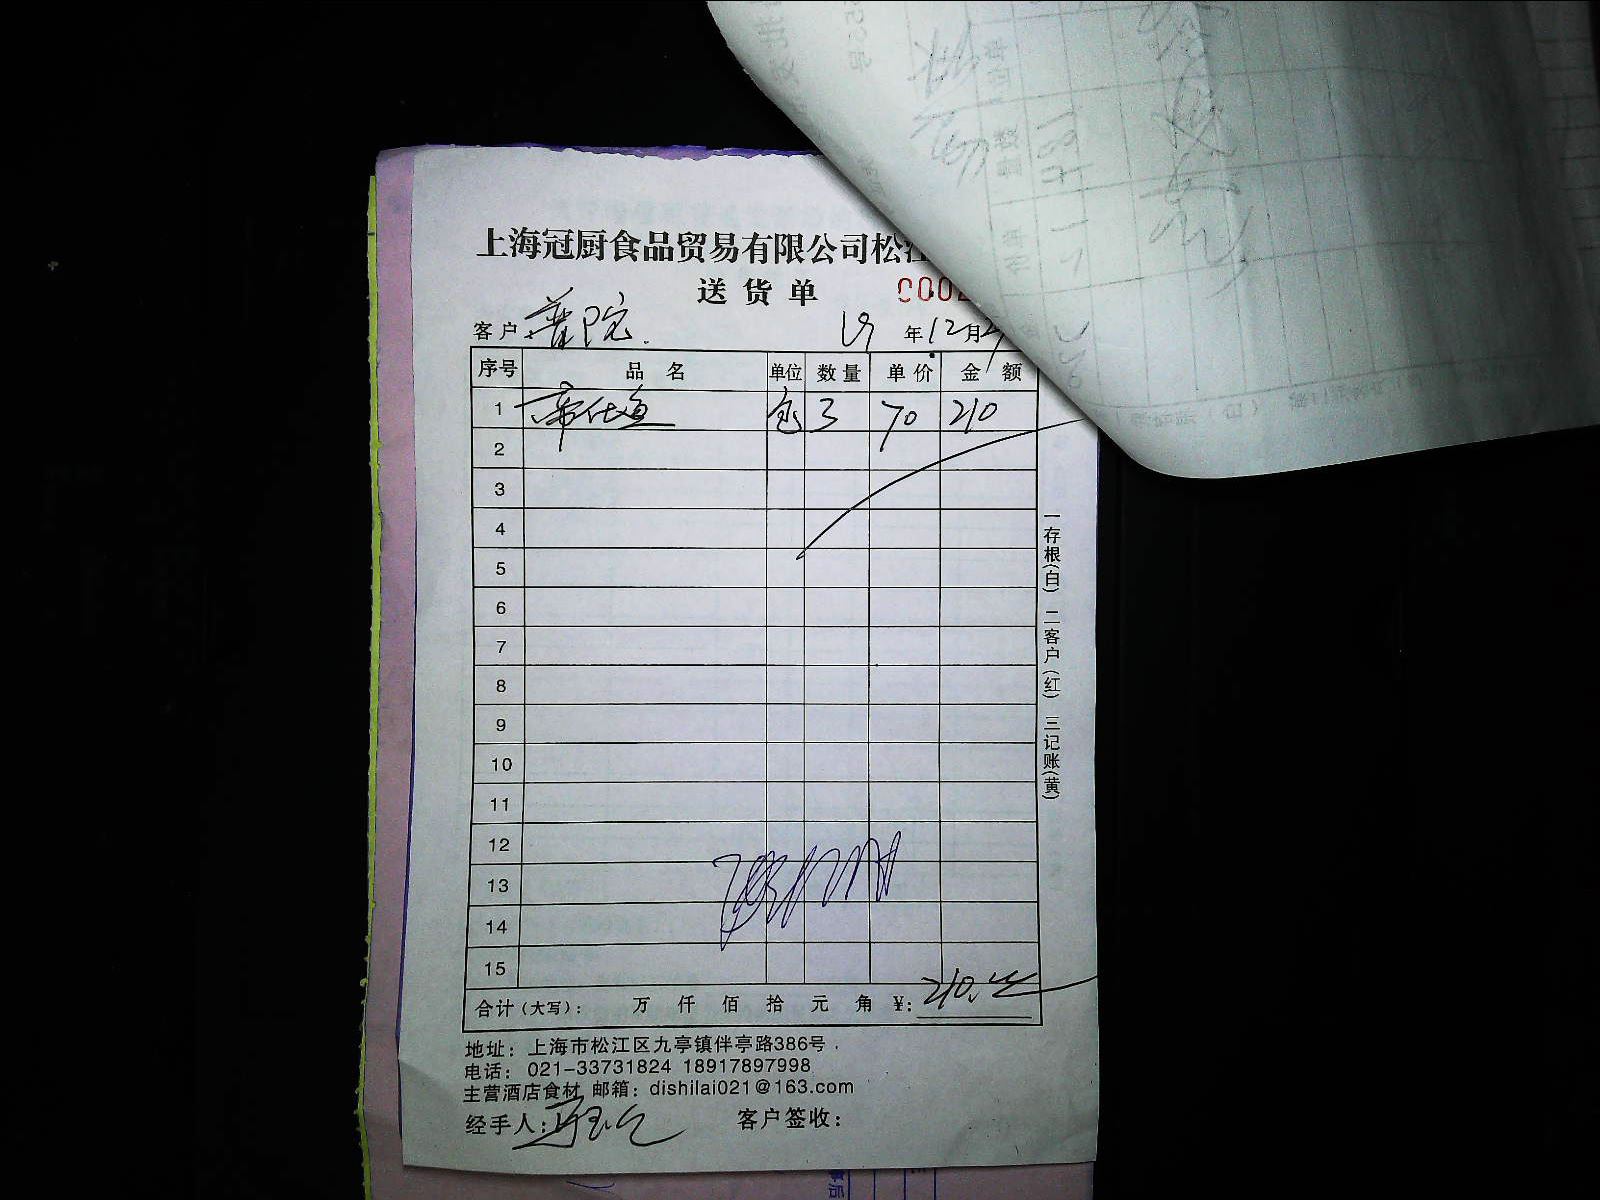 上海冠厨食品贸易有限公司松江
送货单 0002
客户 普陀 19年12月
序号 品名 单位 数量 单价 金额
1 包 3 70 210
2
3
4
5
6
7
8
9
10
11
12
13
14
15
合计(大写): 万 仟 佰 拾 元 角 ¥: 210.
地址: 上海市松江区九亭镇伴亭路386号.
电话: 021-33731824 18917897998
主营酒店食材 邮箱: dishilai021@163.com
经手人: 客户签收:
一存根(白) 二客户(红) 三记账(黄)